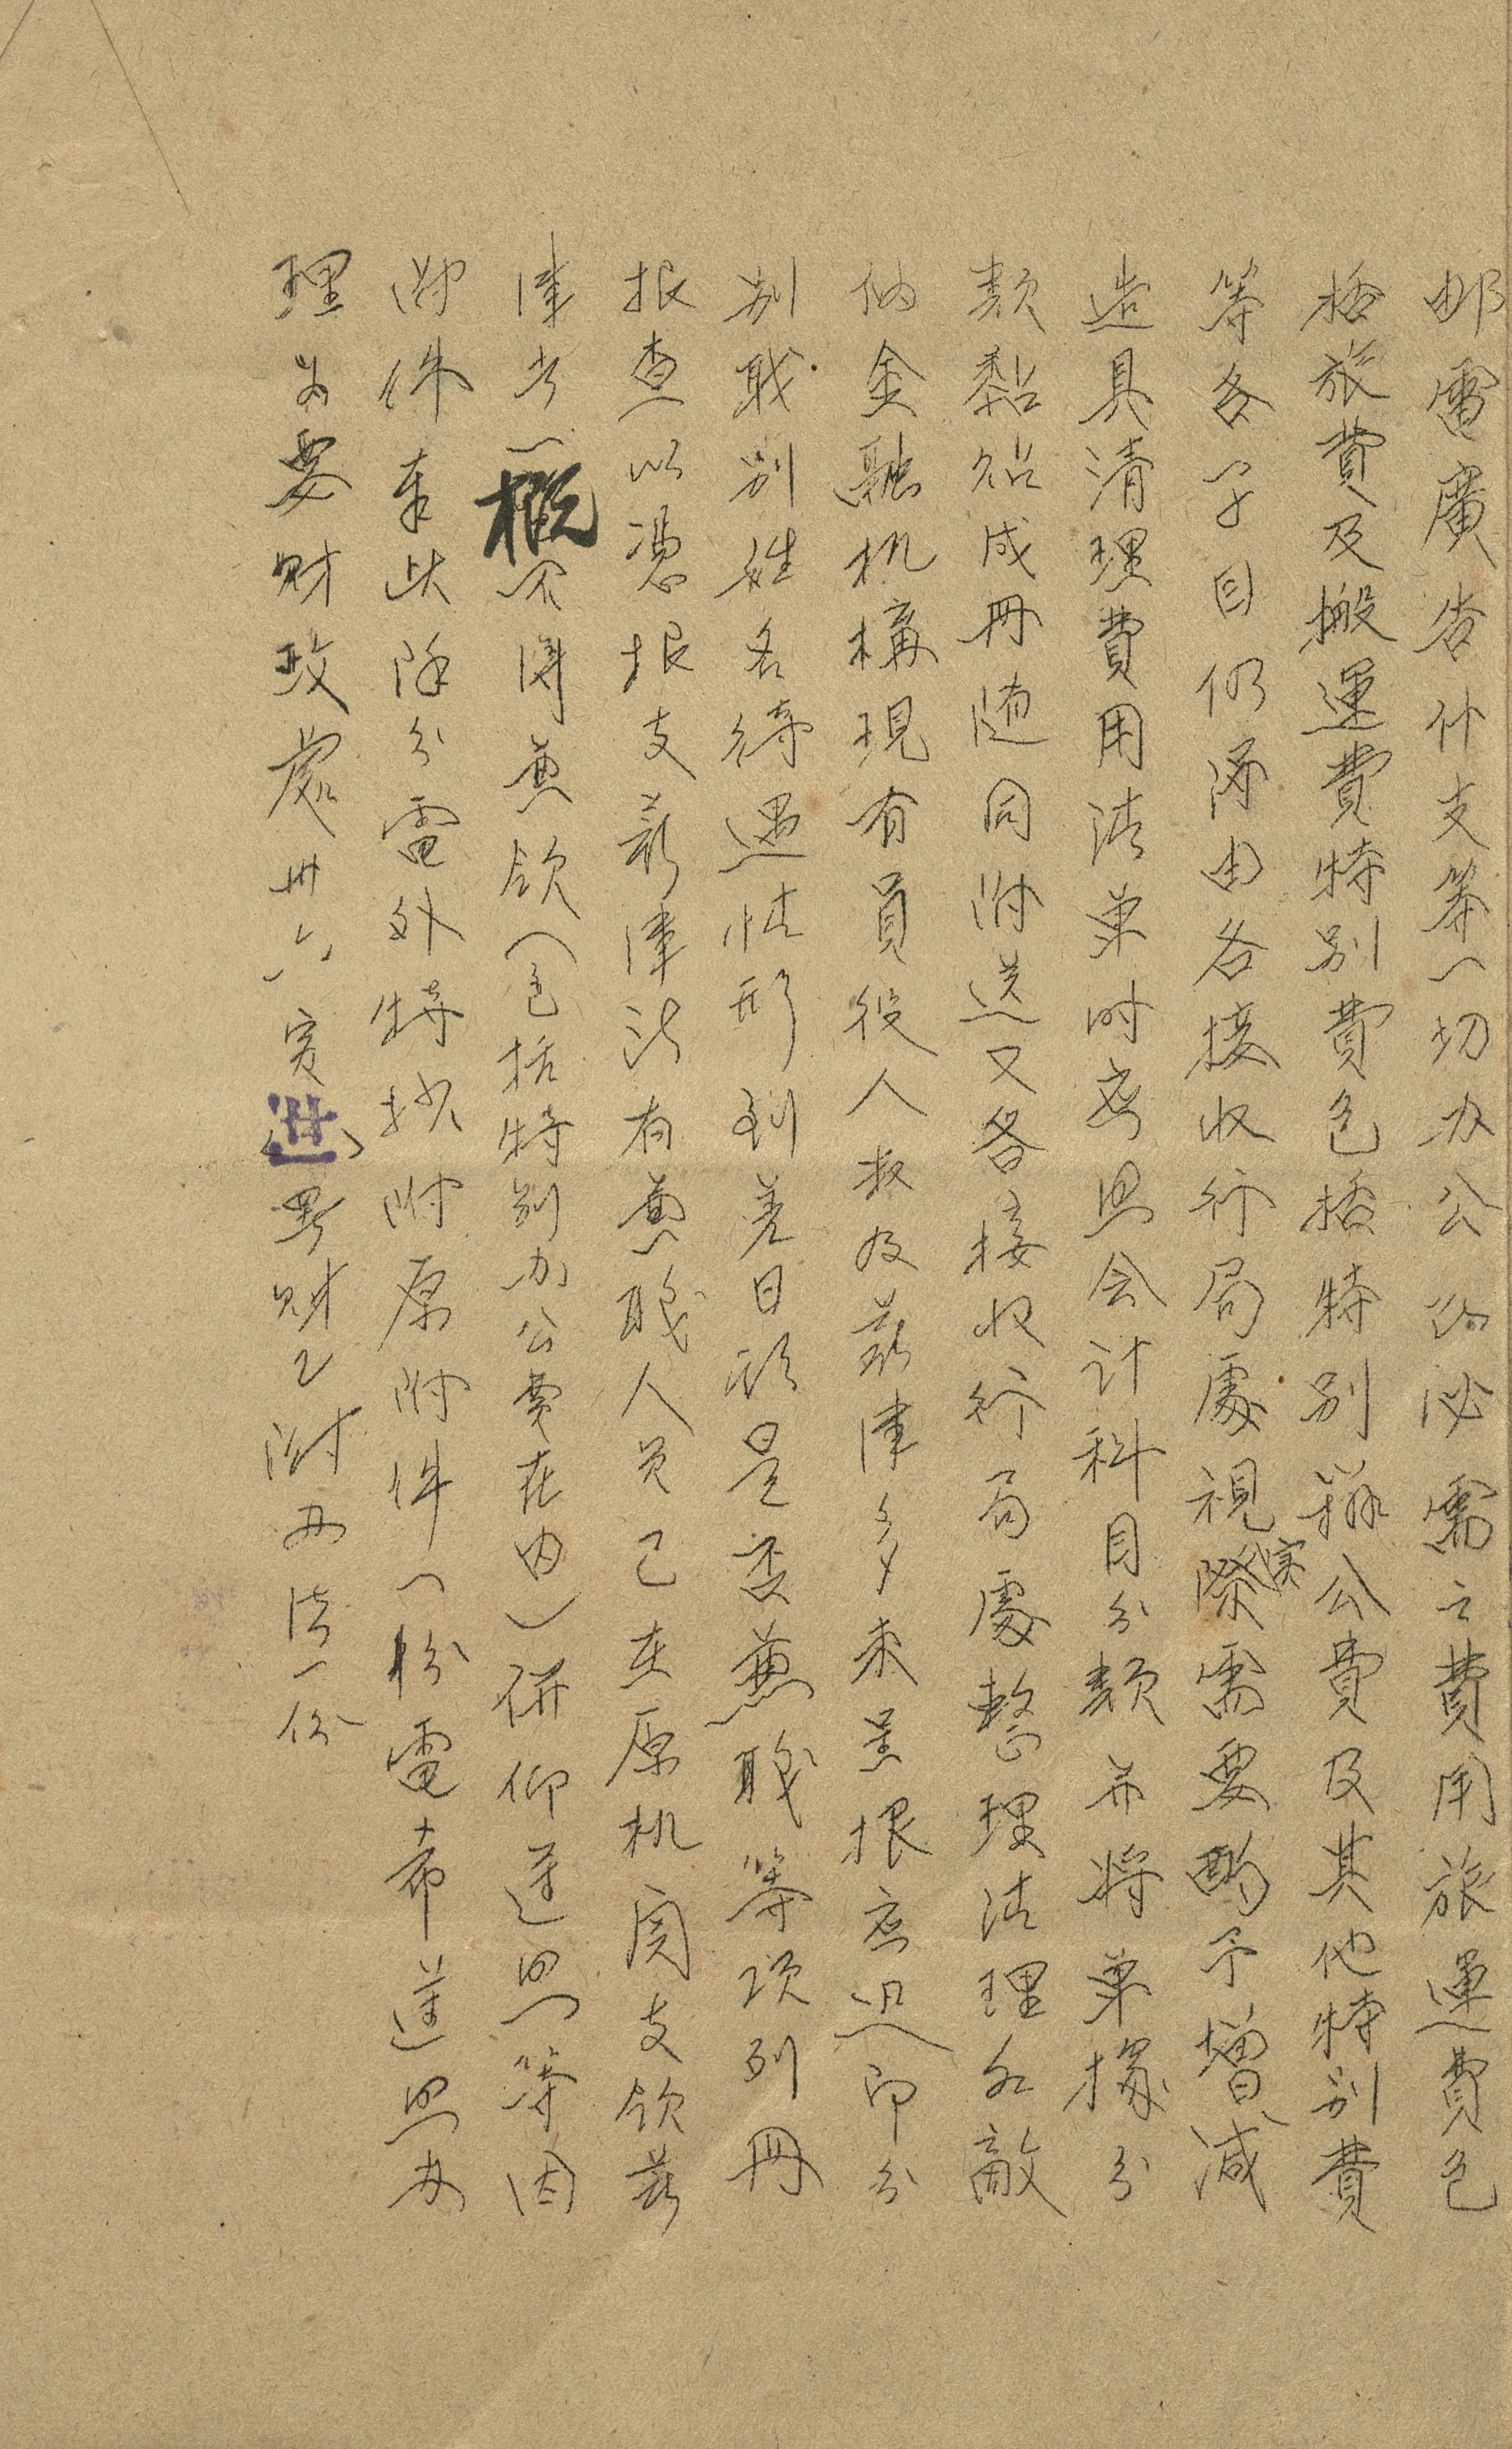 郵電廣告什支等一切办公必需之費用旅運費包
括旅費及搬運費特別費包括特別辦公費及其他特別費
等各子目仍須由各接收行局處視實際需要酌予增減
造具清理費用清單時應照会计科目分類並將單據分
類黏貼成冊随同附送又各接收行局處整理清理各敵
偽金融机構現有員役人数及薪津多未呈报应迅即分
別职別姓名待遇情形到差日期是否兼職等項列冊
报查以憑根支薪津汰有兼職人员已在原机関支领薪
津者一概不得兼领（包括特別办公費在内）併仰遵照等因
附件奉此除分電外特抄附原附件一份電希遵照办
理为要財政處卅六寅世粤財2附办法一份